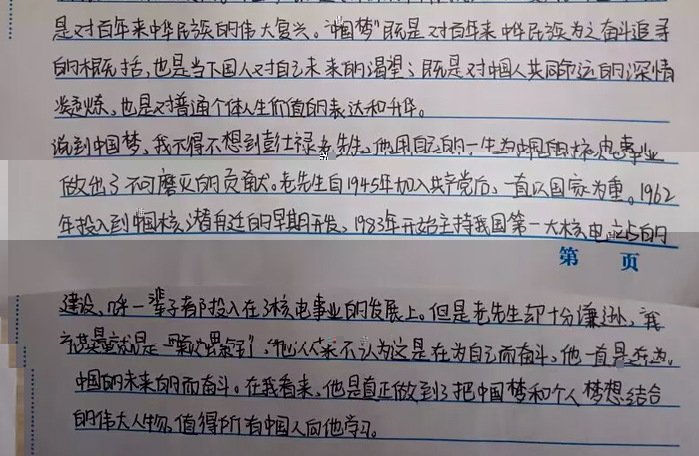 是对百年来中华民族的伟大复兴。“中国梦”既是对百年来中华民族为之奋斗追寻
的概括，也是当下国人对自己未来的渴望；既是对中国人共同命运的深情
提炼，也是对普通个体人生价值的表达和升华。
说到中国梦，我不得不想到彭士禄老先生。他用自己的一生为中国的核电事业
做出了不可磨灭的贡献。老先生自1945年加入共产党后，一直以国家为重。1962
年投入到中国核潜艇的早期开发，1983年开始主持我国第一大核电站的
第 页
建设，一辈子都投入在了核电事业的发展上。但是老先生却十分谦逊，我
其是就是一颗，他从来不认为这是在为自己而奋斗，他一直是在为
中国的未来的而奋斗。在我看来，他是真正做到了把中国梦和个人梦想结合
的伟大人物，值得所有中国人向他学习。